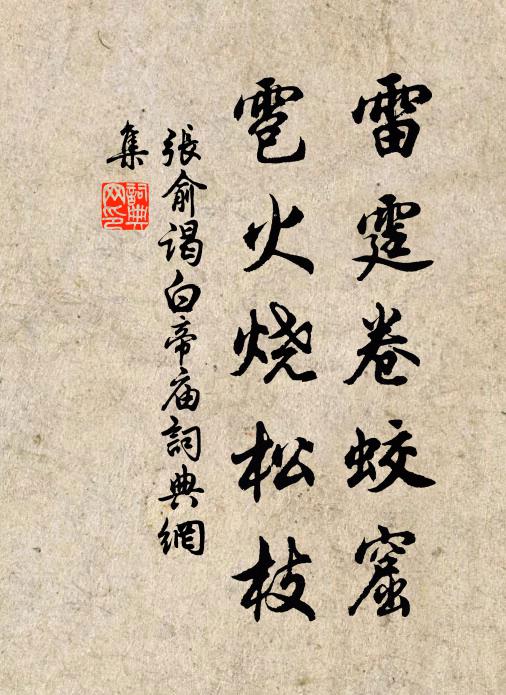 雷霆卷蛟窟
雹火烧松枝
張俞谒白帝庙詞典網
集
詞典
网印